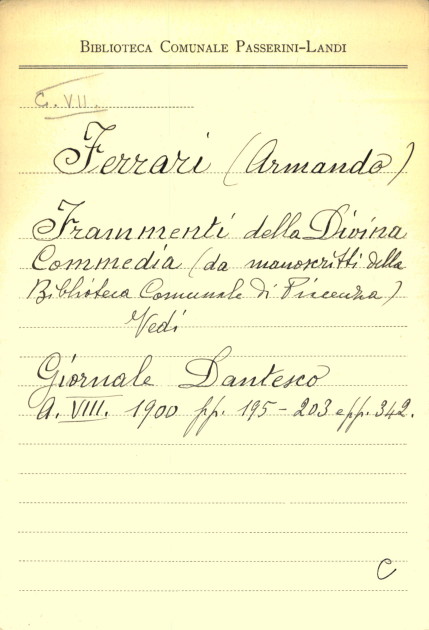 BIBLIOTECA COMUNALE PASSERINI-LANDI
C. VII.
Ferrari (Armando)
Frammenti della Divina
Commedia (da manoscritti della
Biblioteca Comunale di Piacenza)
Vedi
Giornale Dantesco
A. VIII. 1900 pp. 195-203 e pp. 342.
C